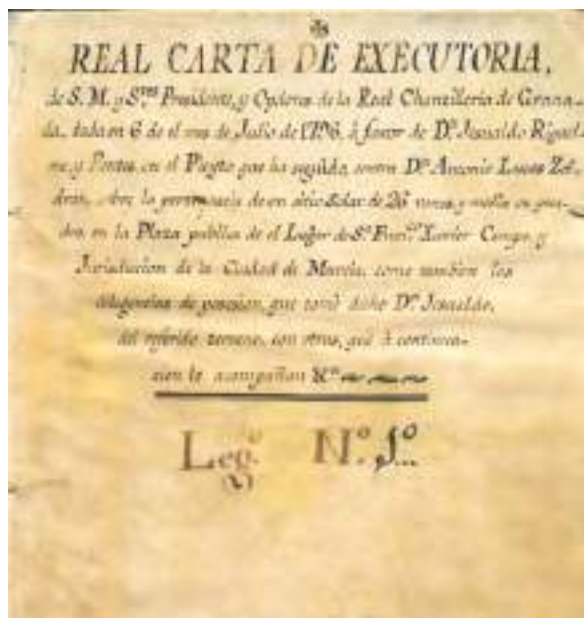 REAL CARTA DE EXECUTORIA,
de S. M. y S.res Presidente, y Oydores de la Real Chancilleria de Grana-
da, dada en 6 de el mes de Julio de 1796, à favor de D.n Jesualdo
y Pontes, en el Pleyto que ha seguido, contra D.n Antonio
sobre la pertenencia de un sitio Solar de 26 varas, y media en qua-
dro, en la Plaza publica de el Lugar de S.n Fran.co Xavier Campo, y
Jurisdicion de la Ciudad de Murcia, como tambien las
diligencias de posesion, que tomò dicho D.n Jesualdo,
del referido terreno, con otros, que à continua-
cion le acompañan
Leg.o N.o 1.o